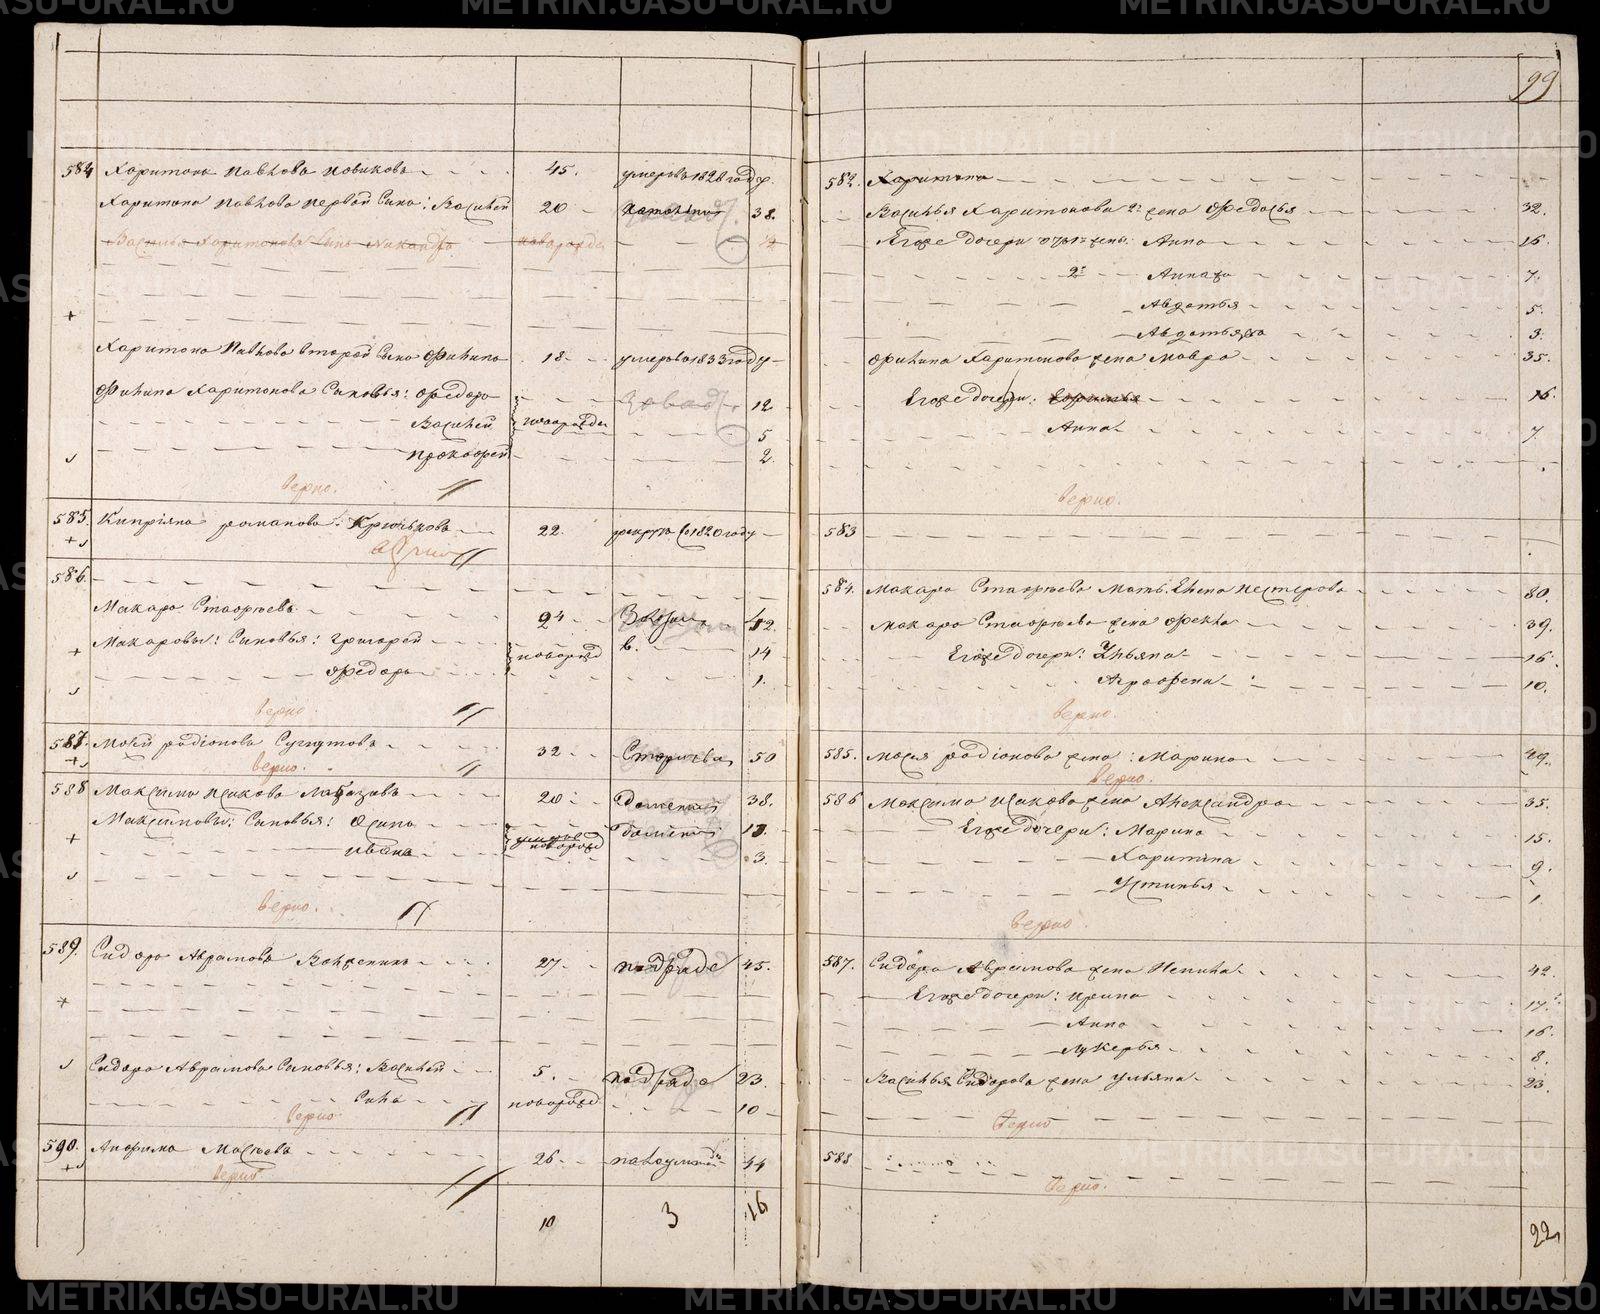 99
584 Харитонъ Павлова Новиковъ 45. умеръ въ 1828 году.
Харитона Павлова первой Сынъ: Василей 20 38.
Василья Харитонова Сынъ Никандръ новорожде
+
Харитона Павлова второй Сынъ Филипъ 18. умеръ въ 1833 году
Филипа Харитонова Сыновья: Федоръ 12
Василей новорожде 5
Прокофей 2.
верно.
585. Кипріянъ Романовъ Крючковъ 22. рекрутъ съ 1820 году
+
верно
586.
Макаръ Стафѣевъ 24 42.
Макаровы: Сыновья: Григорей новорожд 14
+
Федоръ 1.
верно.
587. Мосей Радіоновъ Сунгутовъ 32 50
верно.
588 Максимъ Исаковъ 20 38.
Максимовы: Сыновья: Осипъ
+
Иванъ новорожд 3.
верно.
589. Сидоръ Аврамовъ 27. 45.
+
Сидора Аврамова Сыновья: Василей 5. 23.
Сила новорожд 10
верно
590. Анфимъ Мосѣевъ 26. 44
верно
10 3 16
582. Харитона
Василья Харитонова 2я жена Федосья 32.
Егоже дочери отъ 1й жены: Анна 16.
2й Анна 7.
Авдотья 5.
Авдотья 3.
Филипа Харитонова жена Мавра 35.
Егоже дочери: 16.
Анна 7
верно.
583
584. Макара Стафѣева Мать Елена Нестерова 80.
Макара Стафѣева жена Фекла 39.
Егоже дочери: Ульяна 16.
Аграфена 10.
верно.
585. Мосея Радіонова жена: Марина 49.
верно.
586 Максима Исакова жена Александра 35.
Егоже дочери: Марина 15.
Харитина 9.
Устинья 1.
верно
587. Сидора Аврамова жена Ненила 42.
Егоже дочери: Ирина 17.
Анна 16.
Лукерья 8.
Василья Сидорова жена Ульяна 23.
верно
588
верно.
22
METRIKI.GASO-URAL.RU